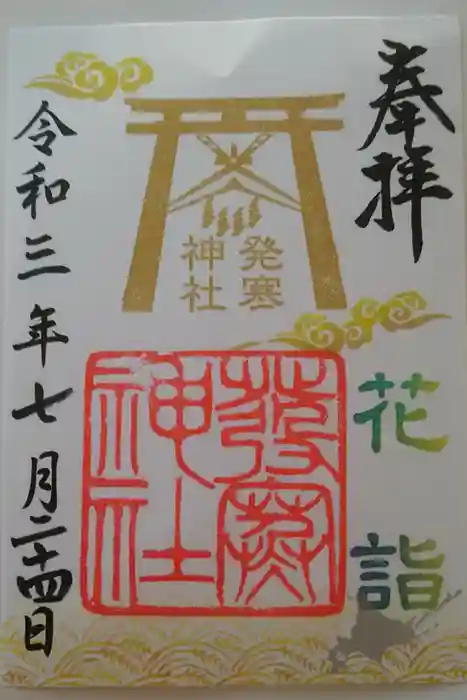 奉拝
花詣
発寒
神社
發寒
神社
令和三年七月二十四日